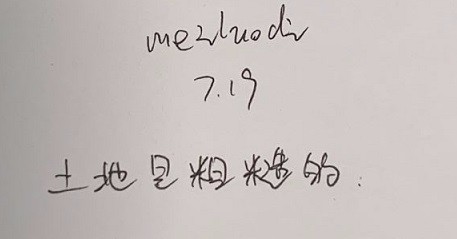 7.19
土地是粗糙的.